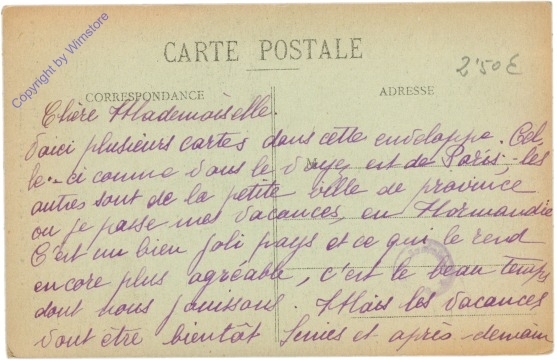 Copyright by Wimstore
CARTE POSTALE
2'50€
CORRESPONDANCE
ADRESSE
Chère Mademoiselle.
Voici plusieurs cartes dans cette enveloppe. Cel-
le-ci comme vous le voyez est de Paris, les
autres sont de la petite ville de province
ou je passe mes vacances, en Normandie
C'est un bien joli pays et ce qui le rend
encore plus agréable, c'est le beau temps
dont nous jouissons. Mais les vacances
vont être bientôt finies et après-demain